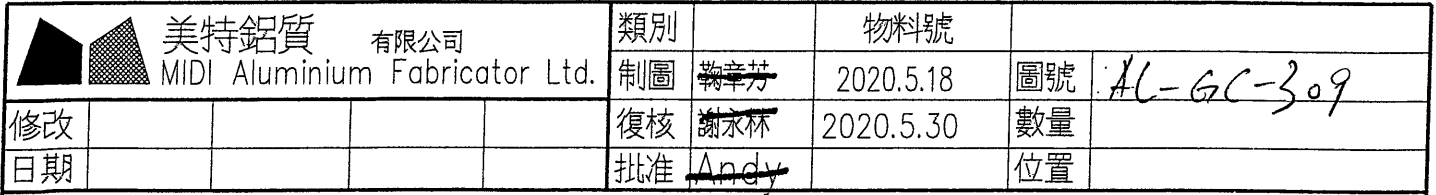 美特鋁質 有限公司
MIDI Aluminium Fabricator Ltd.
類別 物料號
制圖 鞠章芳 2020.5.18 圖號 AL-GC-309
修改 復核 謝永林 2020.5.30 數量
日期 批准 Andy 位置